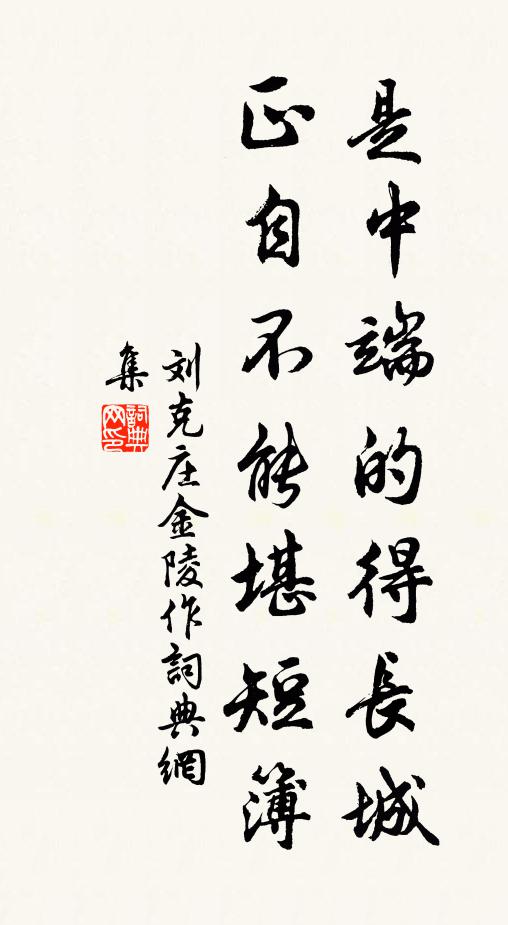 是中端的得長城
正自不能堪短簿
刘克庄金陵作詞典網
集
詞典
网印